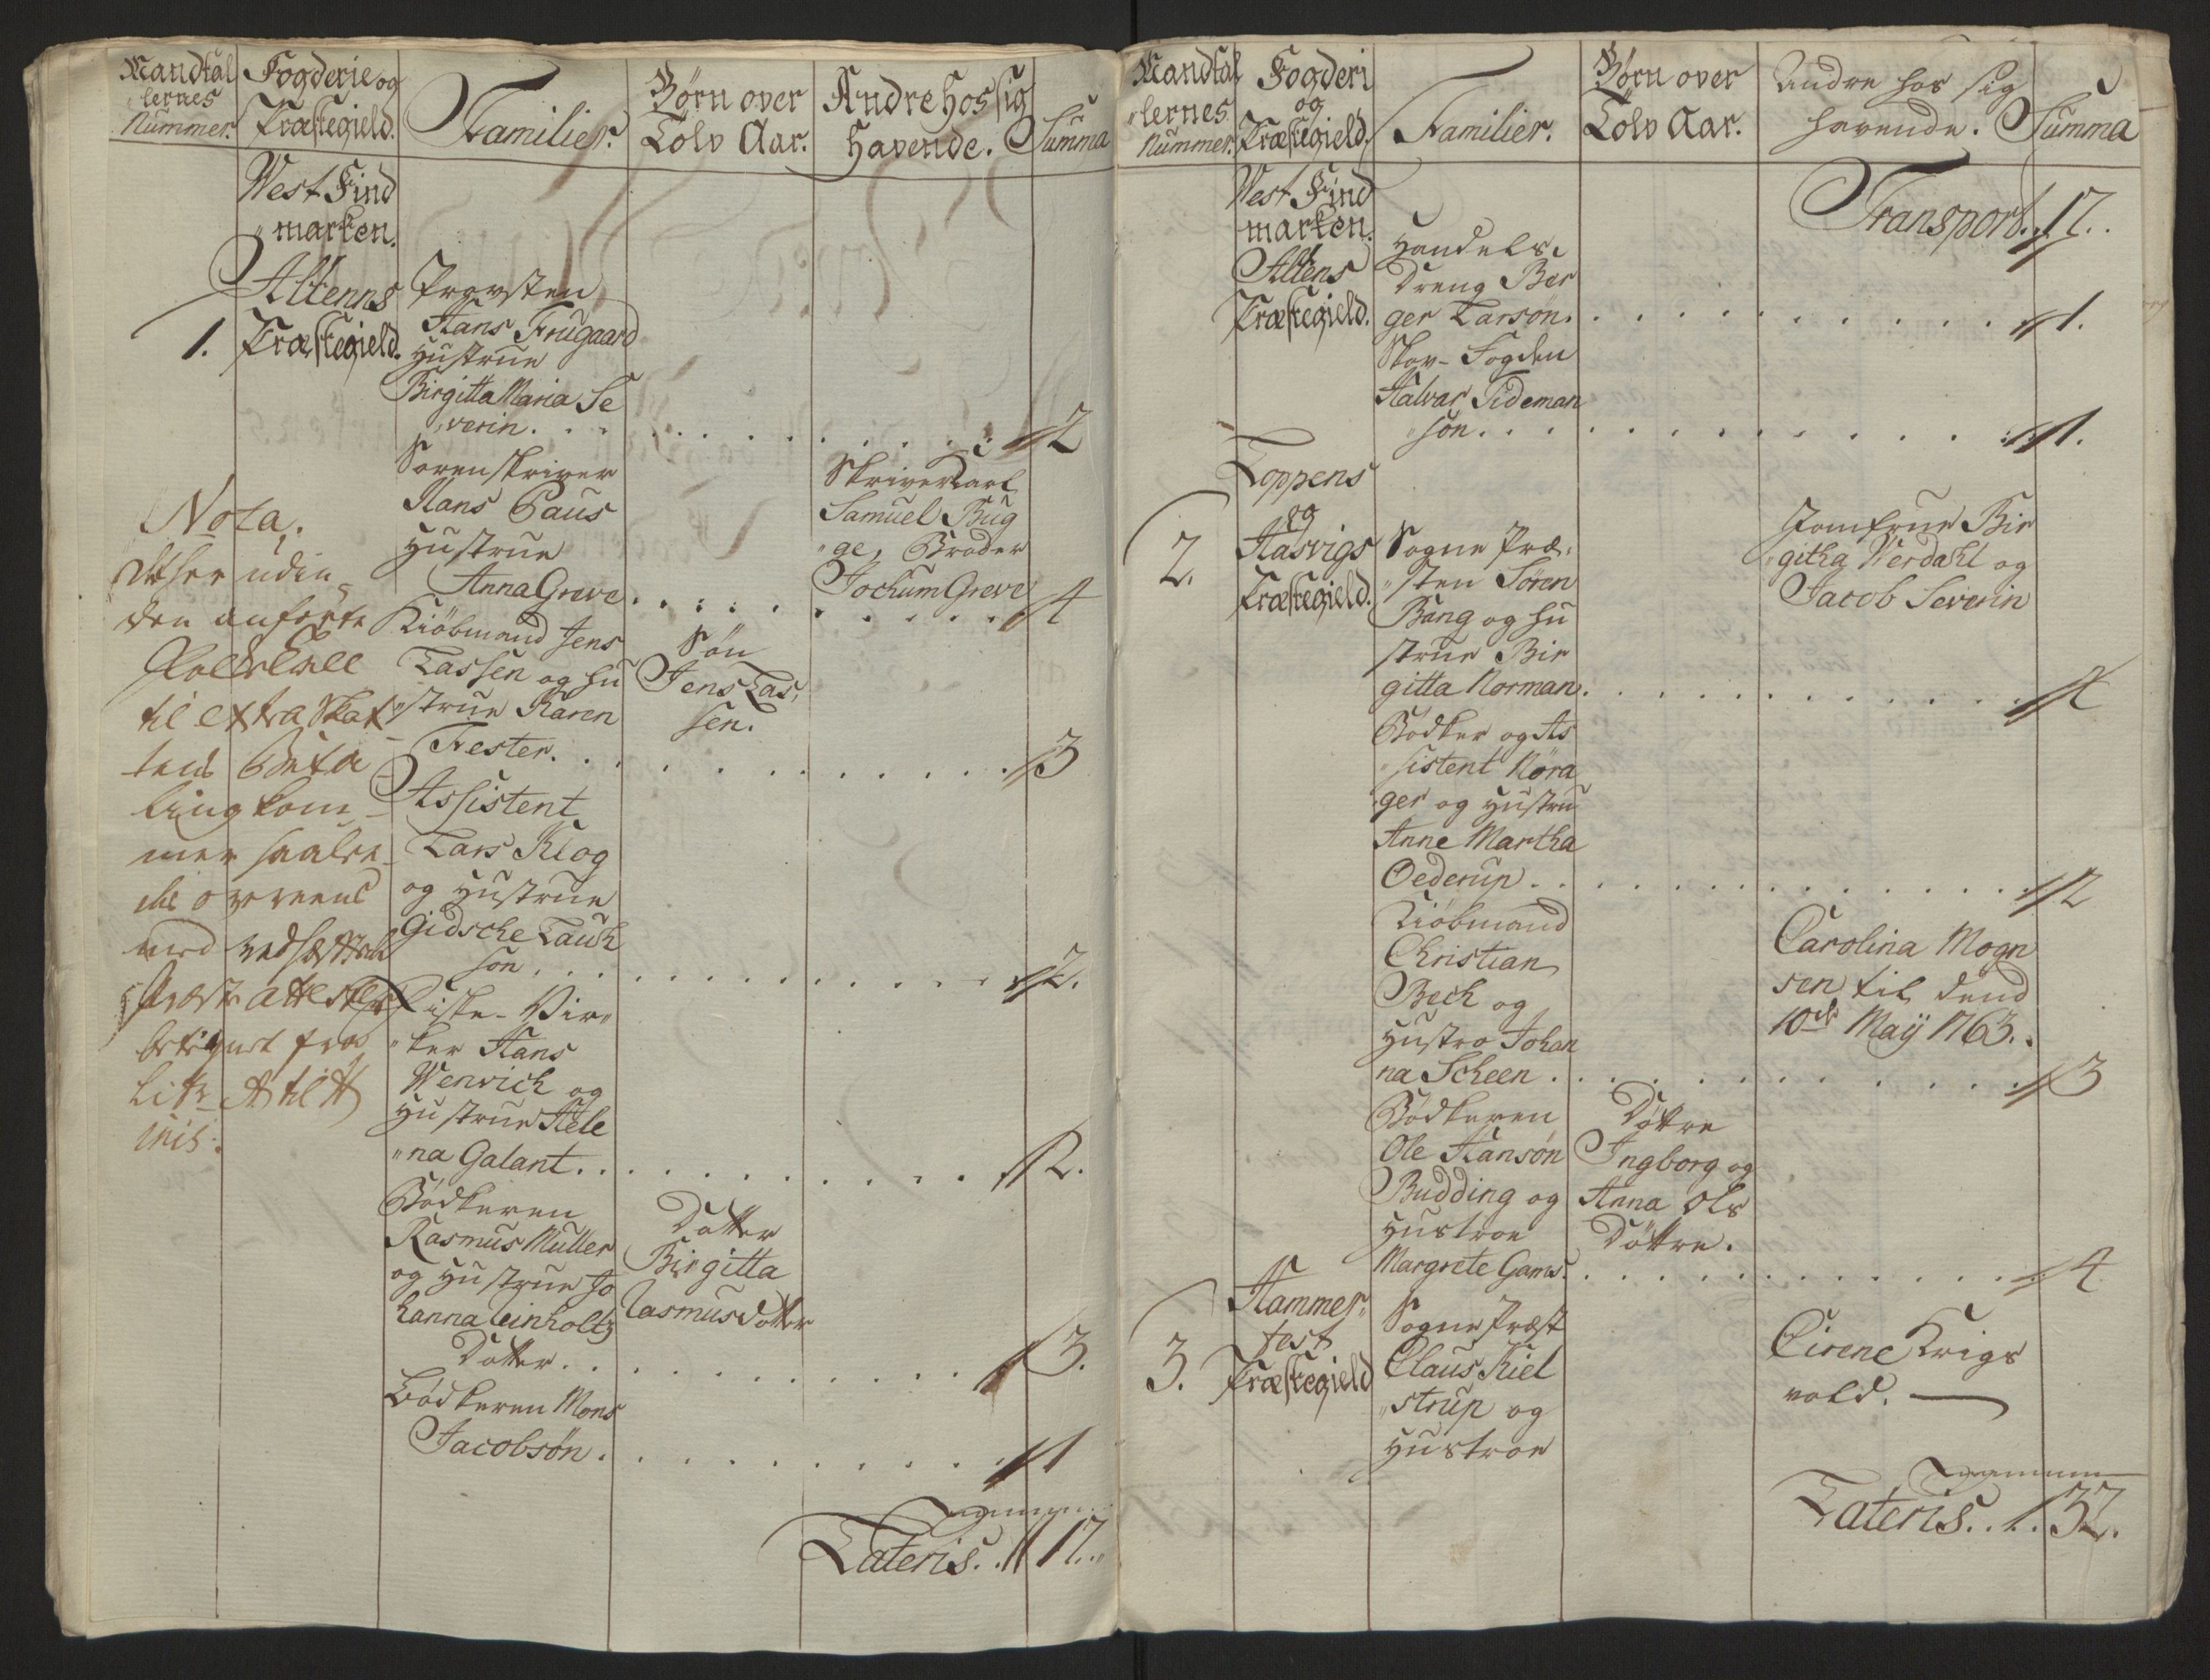 Mandtal
lernes
Nummer.
Fogderie og
Præstegield.
Familier.
Börn over
Tolv Aar.
Andre Hos sig
Havende.
Summa
West Find
marken.
Altenns
1. Præstegield.
Provsten
Hans Frugaard
Hustrue
Birgitta Maria Se
verin. 2
Sorenskriver
Hans Paus
Hustrue
Anna Greve
Skriverkarl
Samuel Bug
ge, Broder
Jochum Greve 4
Kiöbmand Jens
Lassen og Hu
strue Karen
Fester.
Sön
Jens Las,
sen.
3
Assistent
Lars Klog
og Hustrue
Gidsche Lauh
son. 2.
Fiske-Vir,
ker Hans
Wenrich og
Hustrue Hele
na Galant. 2.
Bödkeren
Rasmus Muller
og Hustrue Jo
hanna Einholtz
Datter.
Datter
Birgitta
Rasmusdatter
3.
Bödkeren Mons
Jacobsön. 1
Nota.
den anförte
til extra Skat
tens Beta
ling kom
mer saale
des overeens
med vedhæftede
Lateris. 17.
Mandtal
lernes
Nummer.
Fogderi
og
Præstegield.
Familier.
Börn over
Tolv Aar.
Andre hos sig
havende.
Summa
West Find
marken.
Altens
Præstegield.
Transport. 17.
Handels
Dreng Ber
ger Larsön. 1.
Skov-Fogden
Halvar Tideman
sön. 1.
Loppens
og
2. Hasvigs
Præstegield.
Sogne Præ,
sten Sören
Bang og Hu
strue Bir
gitta Norman.
Jomfrue Bir
githa Werdahl og
Jacob Severin
4
Bödker og As
sistent Nöra
ger og Hustru
Anne Martha
Oederup. 2
Kiöbmand
Christian
Bech og
Hustro Johan
na Scheen.
Carolina Mogn
sen til dend
10de Maij 1763.
3
Bödkeren
Ole Hansön
Budding og
Hustroe
Margrete Gams.
Döttre
Ingborg og
Anna Ols
Döttre.
4
Hammer,
fest
3. Præstegield
Sogne Præst
Claus Kiel
strup og
Hustroe
Cirene Krigs
vold.
Lateris. 32.